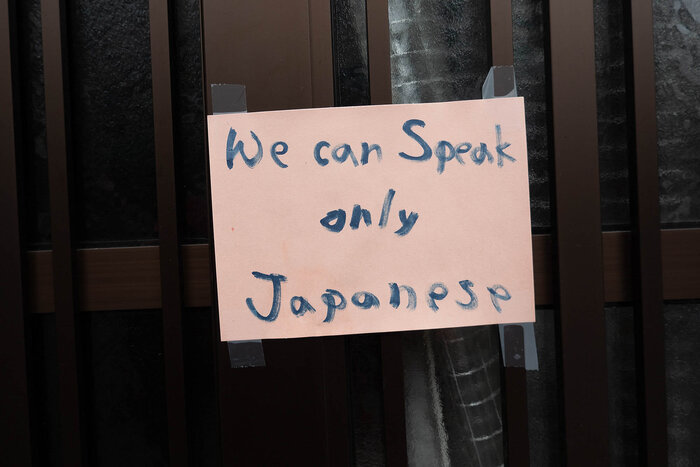 We can Speak
only
Japanese